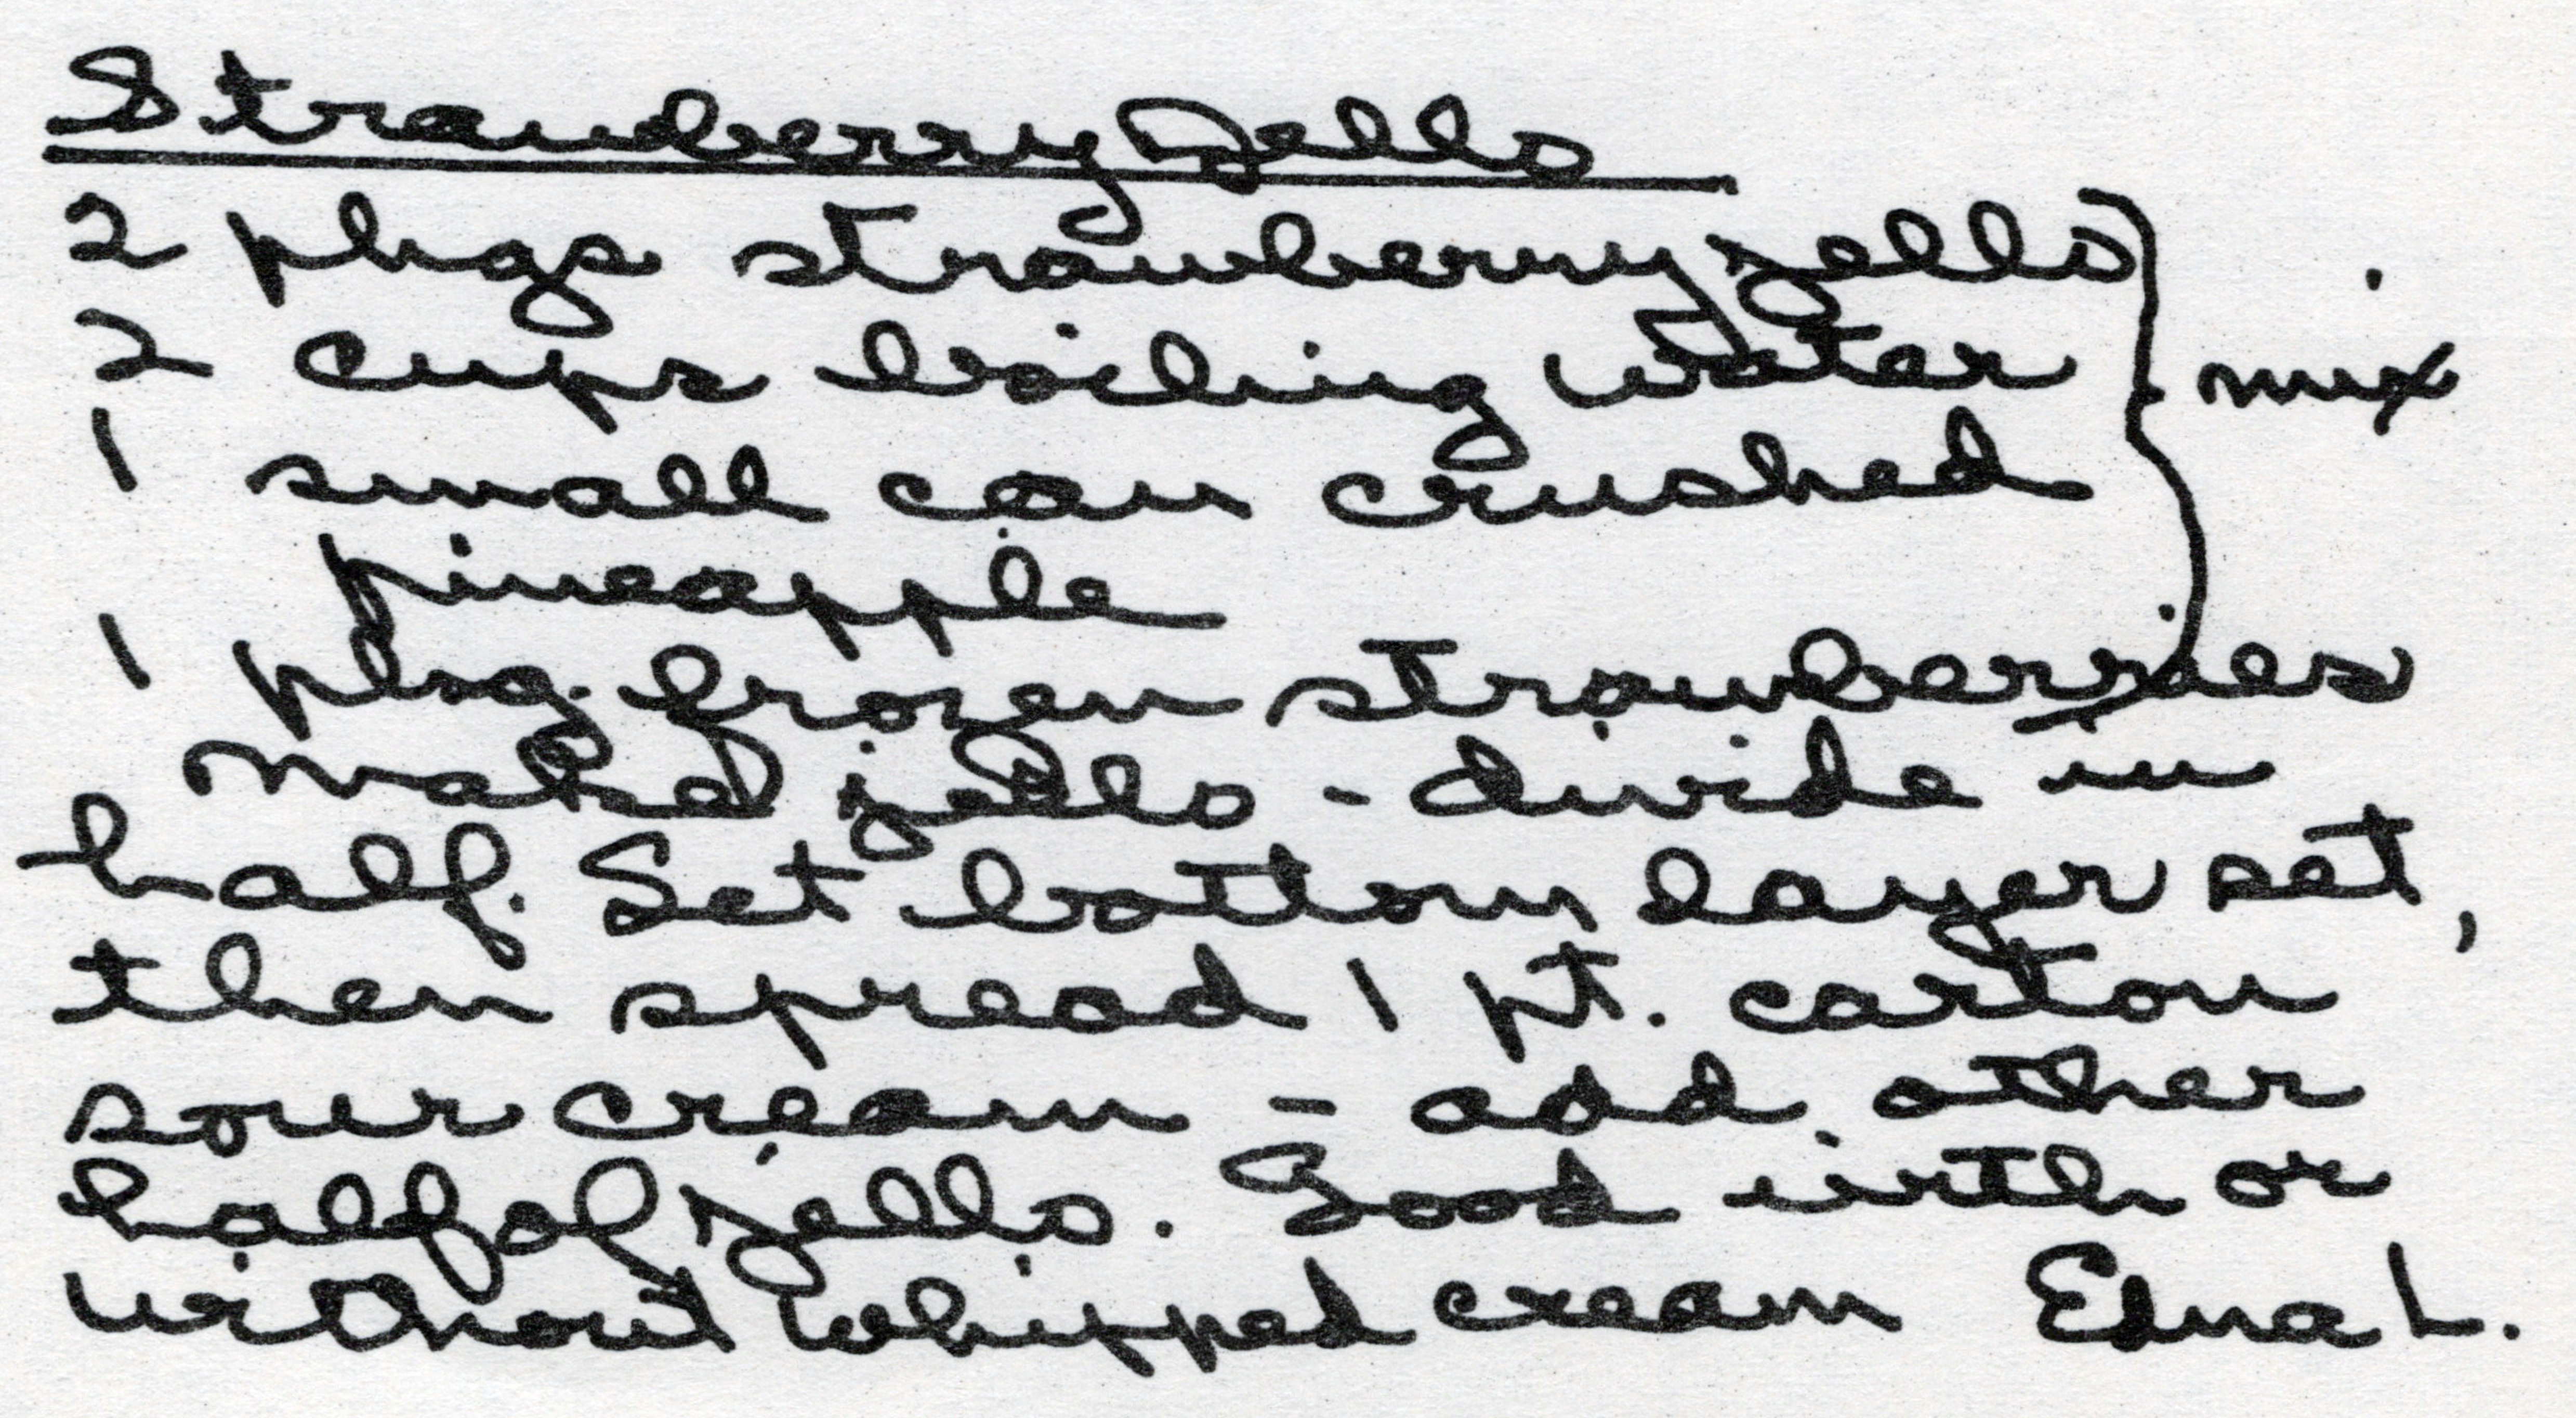 Strawberry Jello
2 pkgs strawberry jello
2 cups boiling water } mix
1 small can crushed
pineapple
1 pkg. frozen strawberries
make jello - divide in
half. Set bottom layer set,
then spread 1 pt. carton
sour cream - add other
half of jello. Good with or
without whipped cream Edna L.